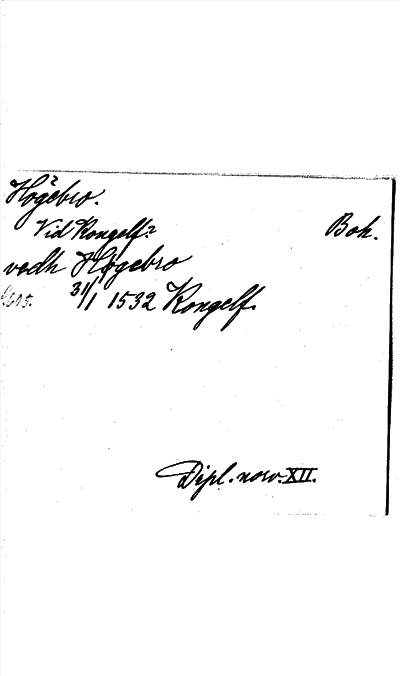 Högebro.
Vid Kongelf? Boh.
vedh Høgebro
31/1 1532 Kongelf.
Dipl. norv. XII.